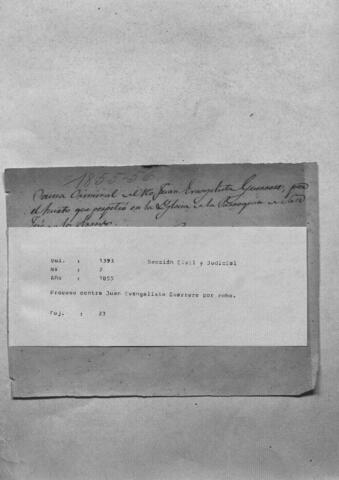 1855-56
Causa Criminal al Reo, Juan Evangelista Guerrero, por
el hurto que perpetró en la Yglecia de la Parroquia de San
José
Vol. : 1393 Sección Civil y Judicial
Nº : 2
Año : 1855
Proceso contra Juan Evangelista Guerrero por robo.
Foj. : 23